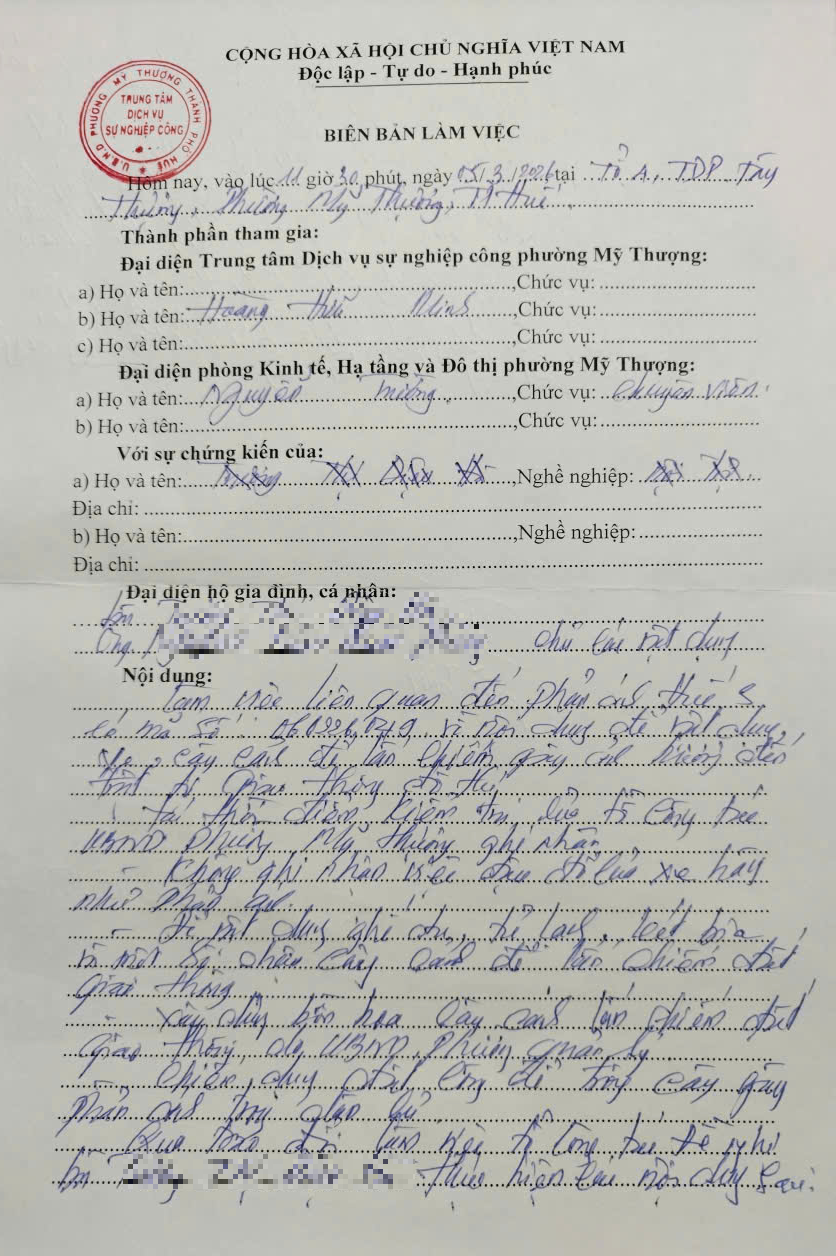 CỘNG HÒA XÃ HỘI CHỦ NGHĨA VIỆT NAM
Độc lập - Tự do - Hạnh phúc
U.B.N.D PHƯỜNG MỸ THƯỢNG THÀNH PHỐ HUẾ
TRUNG TÂM
DỊCH VỤ
SỰ NGHIỆP CÔNG
BIÊN BẢN LÀM VIỆC
Hôm nay, vào lúc 11 giờ 30 phút, ngày 05/3/2026 tại Tổ 1, TDP Tây
Thượng, Phường Mỹ Thượng, TP Huế
Thành phần tham gia:
Đại diện Trung tâm Dịch vụ sự nghiệp công phường Mỹ Thượng:
a) Họ và tên:, Chức vụ:
b) Họ và tên: Hoàng Hữu Minh, Chức vụ:
c) Họ và tên:, Chức vụ:
Đại diện phòng Kinh tế, Hạ tầng và Đô thị phường Mỹ Thượng:
a) Họ và tên: Nguyễn Trường, Chức vụ: Chuyên viên
b) Họ và tên:, Chức vụ:
Với sự chứng kiến của:
a) Họ và tên:, Nghề nghiệp:
Địa chỉ:
b) Họ và tên:, Nghề nghiệp:
Địa chỉ:
Đại diện hộ gia đình, cá nhân:
Ông chủ
Nội dung:
Làm việc liên quan đến phản ánh
có mã số: về nội dung để vật dụng,
cây cảnh để lấn chiếm gây ảnh hưởng đến
trật tự giao thông đô thị
Tại thời điểm kiểm tra của tổ công tác
UBND phường Mỹ Thượng ghi nhận
- Không ghi nhận việc xe máy
như phản ánh.
- Để vật dụng ghế,
và một số chậu cây cảnh để lấn chiếm đất
giao thông
- Xây dựng bồn hoa cây cảnh lấn chiếm đất
giao thông do UBND phường quản lý
- Chiếm dụng đất công để trồng cây gây
phản ánh trong dân cư
Qua trao đổi làm việc tổ công tác đề nghị
bà thực hiện các nội dung sau: